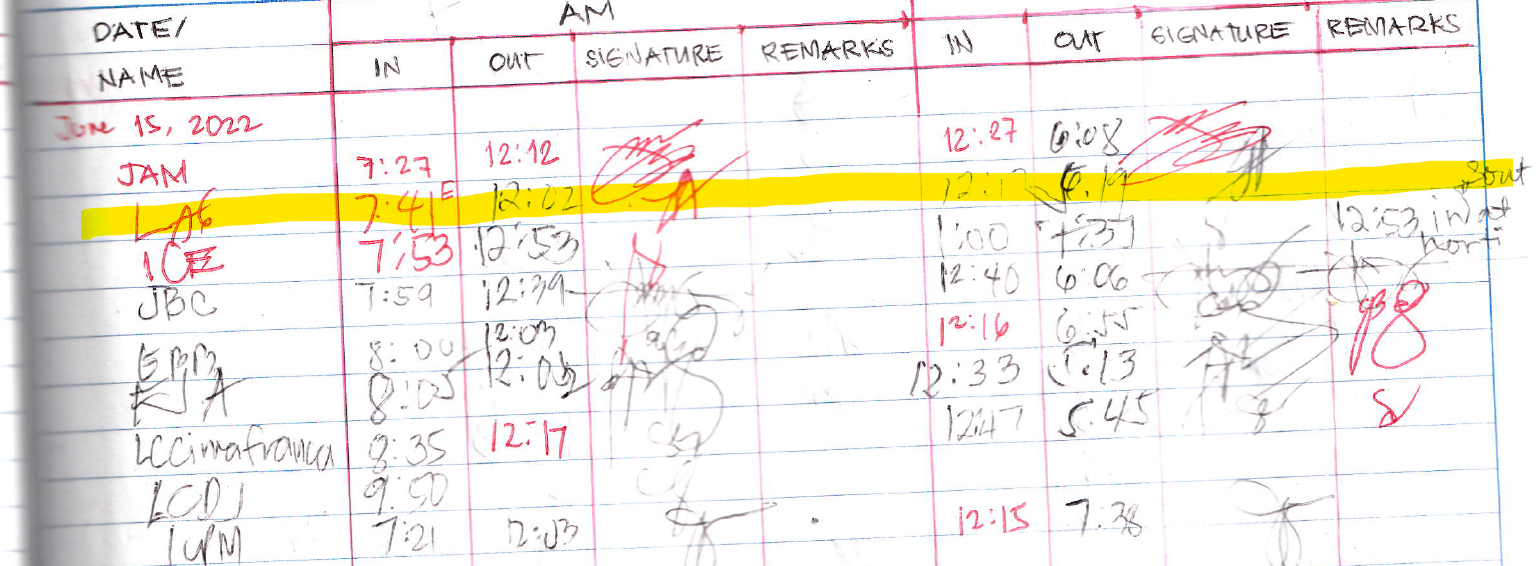 AM
DATE/
NAME IN OUT SIGNATURE REMARKS IN OUT SIGNATURE REMARKS
June 15, 2022
JAM 7:27 12:12 12:27 6:08
LAG 7:41 12:02
ICE 7:53 12:53 1:00 12:53 in at
JBC 7:59 12:39 12:40 6:06
8:00 12:03 12:16 6:55
KJA 8:05 12:33 5:13
LCCimafranca 8:35 12:17 12:47 5:45
LCDJ 9:50
7:21 12:03 12:15 7:38